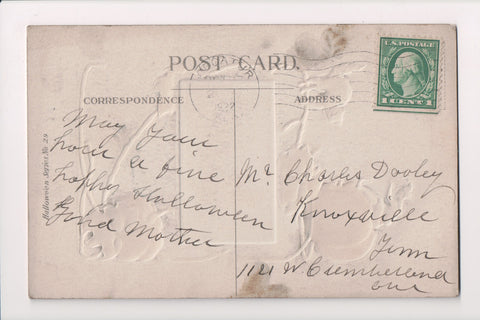 POST CARD.
CORRESPONDENCE
ADDRESS
U.S. POSTAGE
1 CENT 1
Halloween Series No. 29
May You
have a fine
happy Halloween
Fond Mother
Mr Charles Dooley
Knoxville
Tenn
1121 W Cumberland
ave